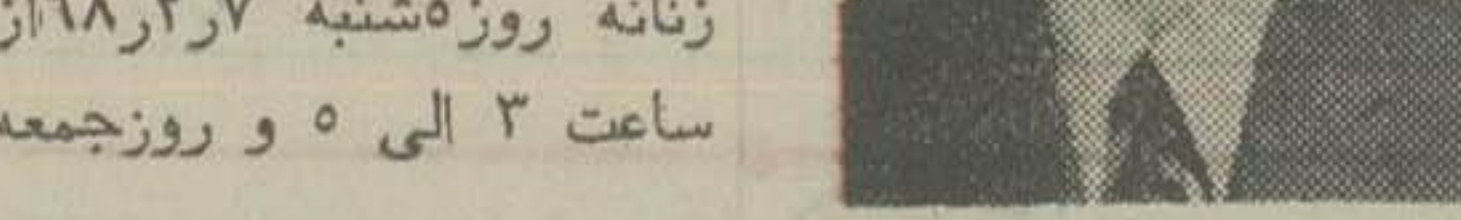 زنانه روز ۵شنبه ۷ر۲ر۶۸ از
ساعت ۳ الی ۵ و روزجمعه